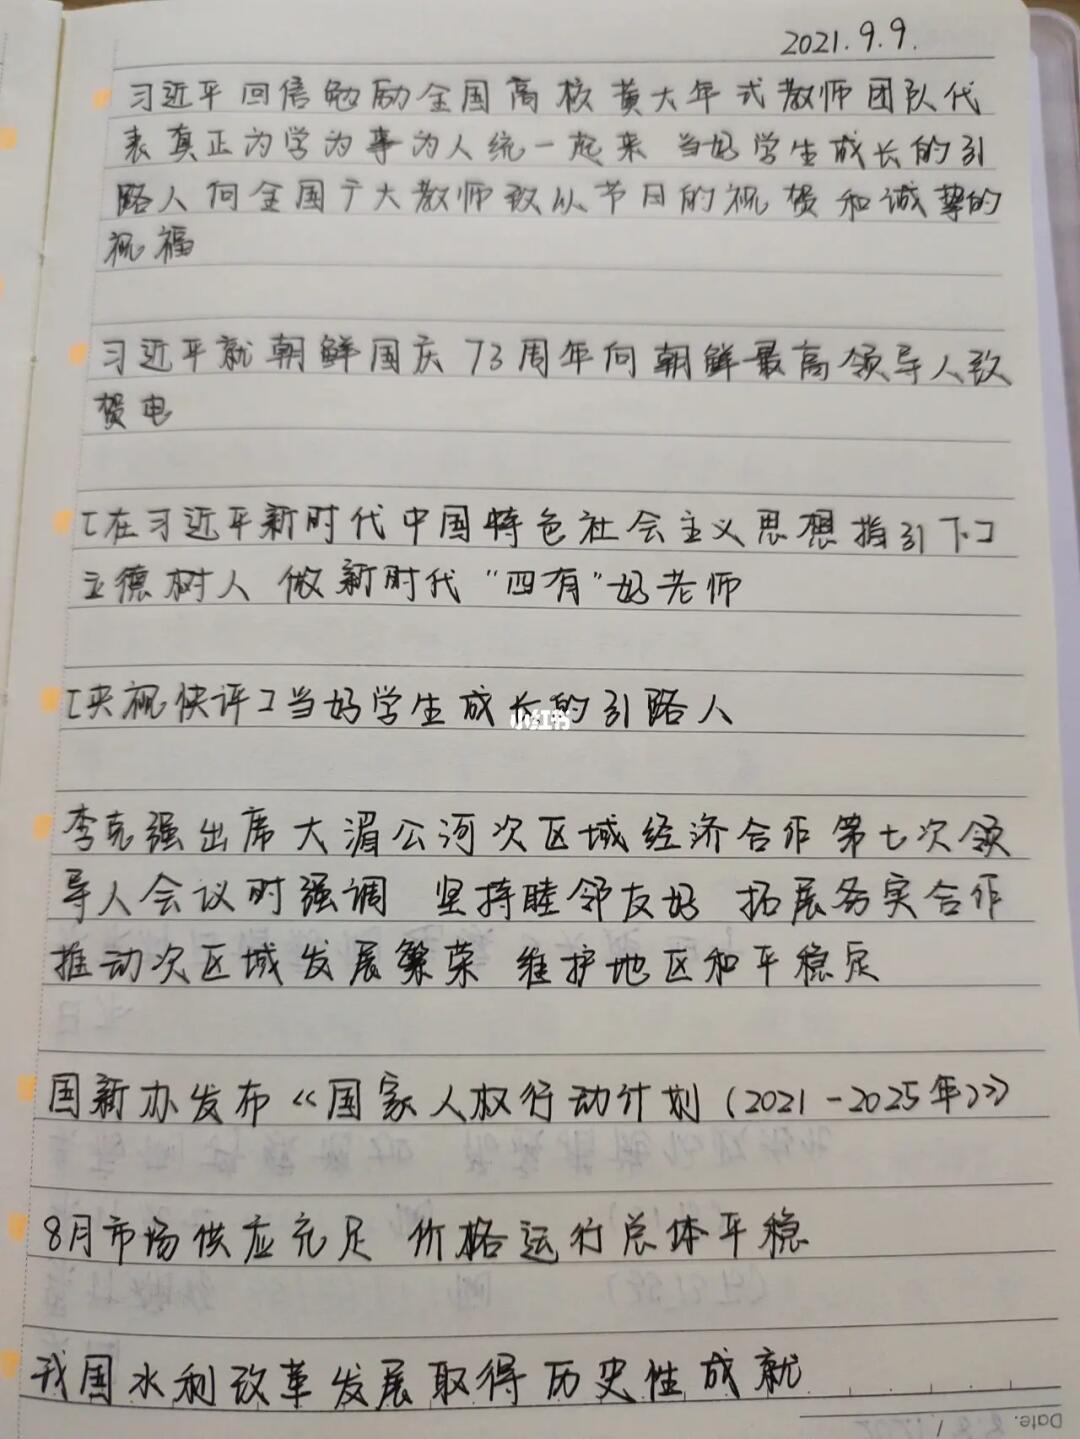 2021.9.9.
习近平回信勉励全国高校黄大年式教师团队代
表真正为学为事为人统一起来 当好学生成长的引
路人 向全国广大教师致以节日的祝贺和诚挚的
祝福
习近平就朝鲜国庆73周年向朝鲜最高领导人致
贺电
[在习近平新时代中国特色社会主义思想指引下]
立德树人 做新时代“四有”好老师
[央视快评]当好学生成长的引路人
小红书
李克强出席大湄公河次区域经济合作第七次领
导人会议时强调 坚持睦邻友好 拓展务实合作
推动次区域发展繁荣 维护地区和平稳定
国新办发布《国家人权行动计划(2021-2025年)》
8月市场供应充足 价格运行总体平稳
我国水利改革发展取得历史性成就
Date.